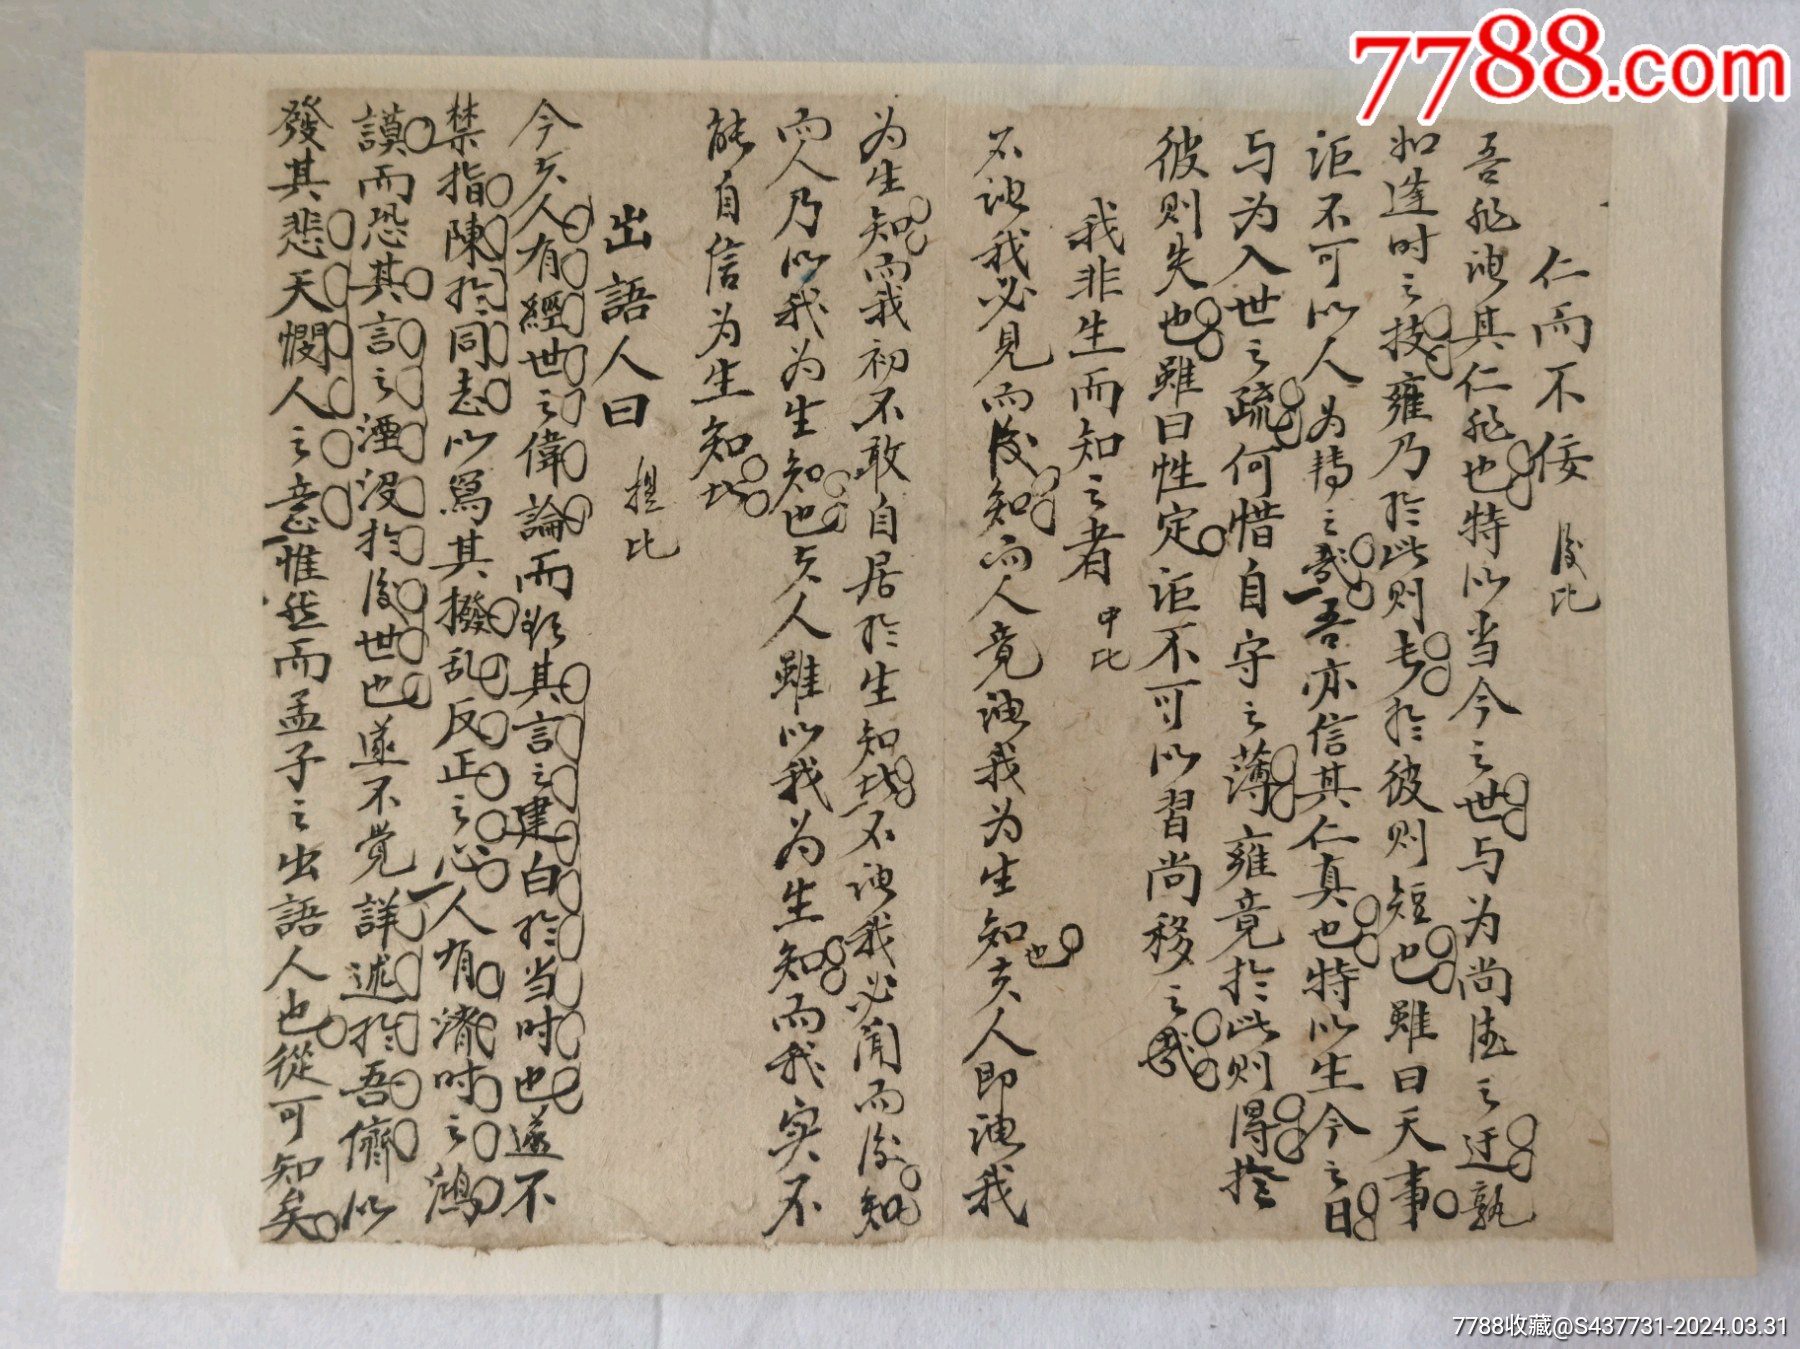 7788.com
仁而不佞 後比
吾非謂其仁非也特以当今之世与为尚德之迂孰
如逢时之技雍乃於此则長於彼则短也雖曰天事
詎不可以人为轉之哉吾亦信其仁真也特以生今之日
与为入世之疏何惜自守之薄雍竟於此则得於
彼则失也雖曰性定詎不可以習尚移之哉
我非生而知之者 中比
不谓我必見而後知而人竟谓我为生知也夫人即谓我
为生知而我初不敢自居於生知哉不谓我必闻而後知
而人乃以我为生知也夫人雖以我为生知而我实不
能自信为生知哉
出語人曰 提比
今夫人有經世之偉論而欲其言之建白於当时也遂不
禁指陳於同志以爲其撥乱反正之心人有濟时之鴻
謨而恐其言之湮没於後世也遂不觉詳述於吾儕以
發其悲天憫人之意惟然而孟子之出語人也從可知矣
7788收藏@S437731-2024.03.31